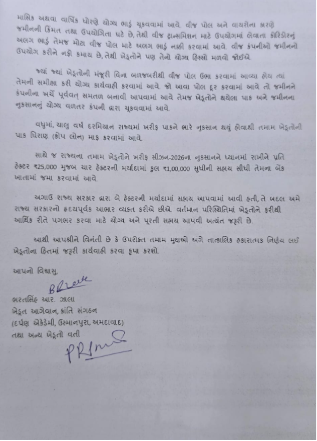 માસિક અથવા વાર્ષિક ધોરણે યોગ્ય ભાડું ચૂકવવામાં આવે. વીજ પોલ અને વાયરોના કારણે
જમીનની કિંમત તથા ઉપયોગિતા ઘટે છે, તેથી વીજ ટ્રાન્સમિશન માટે ઉપયોગમાં લેવાતા કોરિડોરનું
અલગ ભાડું તેમજ મોટા વીજ પોલ માટે અલગ ભાડું નક્કી કરવામાં આવે. વીજ કંપનીઓ જમીનની
ઉપયોગ કરીને નફો કમાય છે, તેથી ખેડૂતોને પણ તેનો યોગ્ય હિસ્સો મળવો જોઈએ.
જ્યાં જ્યાં ખેડૂતોની મંજૂરી વિના બળજબરીથી વીજ પોલ ઉભા કરવામાં આવ્યા હોય ત્યાં
તેમની સમીક્ષા કરી યોગ્ય કાર્યવાહી કરવામાં આવે. જો આવા પોલ દૂર કરવામાં આવે તો જમીનને
કંપનીના ખર્ચે પૂર્વવત સમતળ બનાવી આપવામાં આવે તેમજ ખેડૂતોને થયેલા પાક અને જમીનના
નુકસાનનું યોગ્ય વળતર કંપની દ્વારા ચૂકવવામાં આવે.
વધુમાં, ચાલુ વર્ષ દરમિયાન રાજ્યમાં ખરીફ પાકને ભારે નુકસાન થયું હોવાથી તમામ ખેડૂતોની
પાક ધિરાણ (ક્રોપ લોન) માફ કરવામાં આવે.
સાથે જ રાજ્યના તમામ ખેડૂતોને ખરીફ સીઝન-2026ના નુકસાનને ધ્યાનમાં રાખીને પ્રતિ
હેક્ટર ₹25,000 મુજબ ચાર હેક્ટરની મર્યાદામાં કુલ ₹1,00,000 સુધીની સહાય સીધી તેમના બેંક
ખાતામાં જમા કરવામાં આવે.
અગાઉ રાજ્ય સરકાર દ્વારા બે હેક્ટરની મર્યાદામાં સહાય આપવામાં આવી હતી, તે બદલ અમે
રાજ્ય સરકારનો હૃદયપૂર્વક આભાર વ્યક્ત કરીએ છીએ. વર્તમાન પરિસ્થિતિમાં ખેડૂતોને ફરીથી
આર્થિક રીતે પગભર કરવા માટે યોગ્ય અને પૂરતી સહાય આપવી અત્યંત જરૂરી છે.
આથી આપશ્રીને વિનંતી છે કે ઉપરોક્ત તમામ મુદ્દાઓ અંગે તાત્કાલિક હકારાત્મક નિર્ણય લઈ
ખેડૂતોના હિતમાં જરૂરી કાર્યવાહી કરવા કૃપા કરશો.
આપનો વિશ્વાસુ,
ભરતસિંહ આર. ઝાલા
ખેડૂત આગેવાન, ક્રાંતિ સંગઠન
(દર્પણ એકેડેમી, ઉસ્માનપુરા, અમદાવાદ)
તથા અન્ય ખેડૂતો વતી